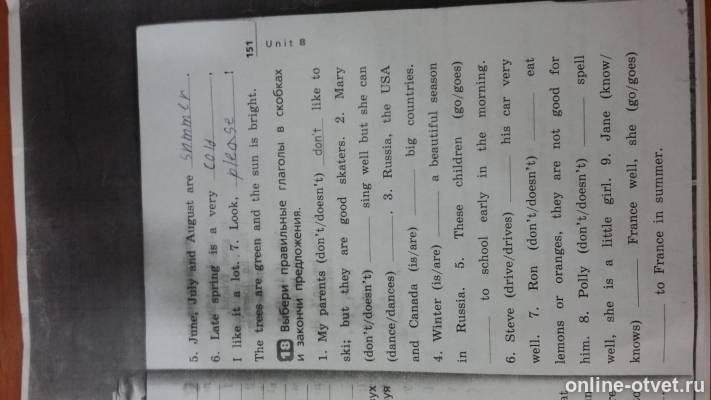 5. June, July and August are summer.
6. Late spring is a very cold.
I like it a lot. 7. Look, please!
The trees are green and the sun is bright.
151 Unit 8
18 Выбери правильные глаголы в скобках
и закончи предложения.
1. My parents (don't/doesn't) don't like to
ski; but they are good skaters. 2. Mary
(don't/doesn't) ______ sing well but she can
(dance/dances) ______. 3. Russia, the USA
and Canada (is/are) ______ big countries.
4. Winter (is/are) ______ a beautiful season
in Russia. 5. These children (go/goes)
______ to school early in the morning.
6. Steve (drive/drives) ______ his car very
well. 7. Ron (don't/doesn't) ______ eat
lemons or oranges, they are not good for
him. 8. Polly (don't/doesn't) ______ spell
well, she is a little girl. 9. Jane (know/
knows) ______ France well, she (go/goes)
______ to France in summer.
online-otvet.ru